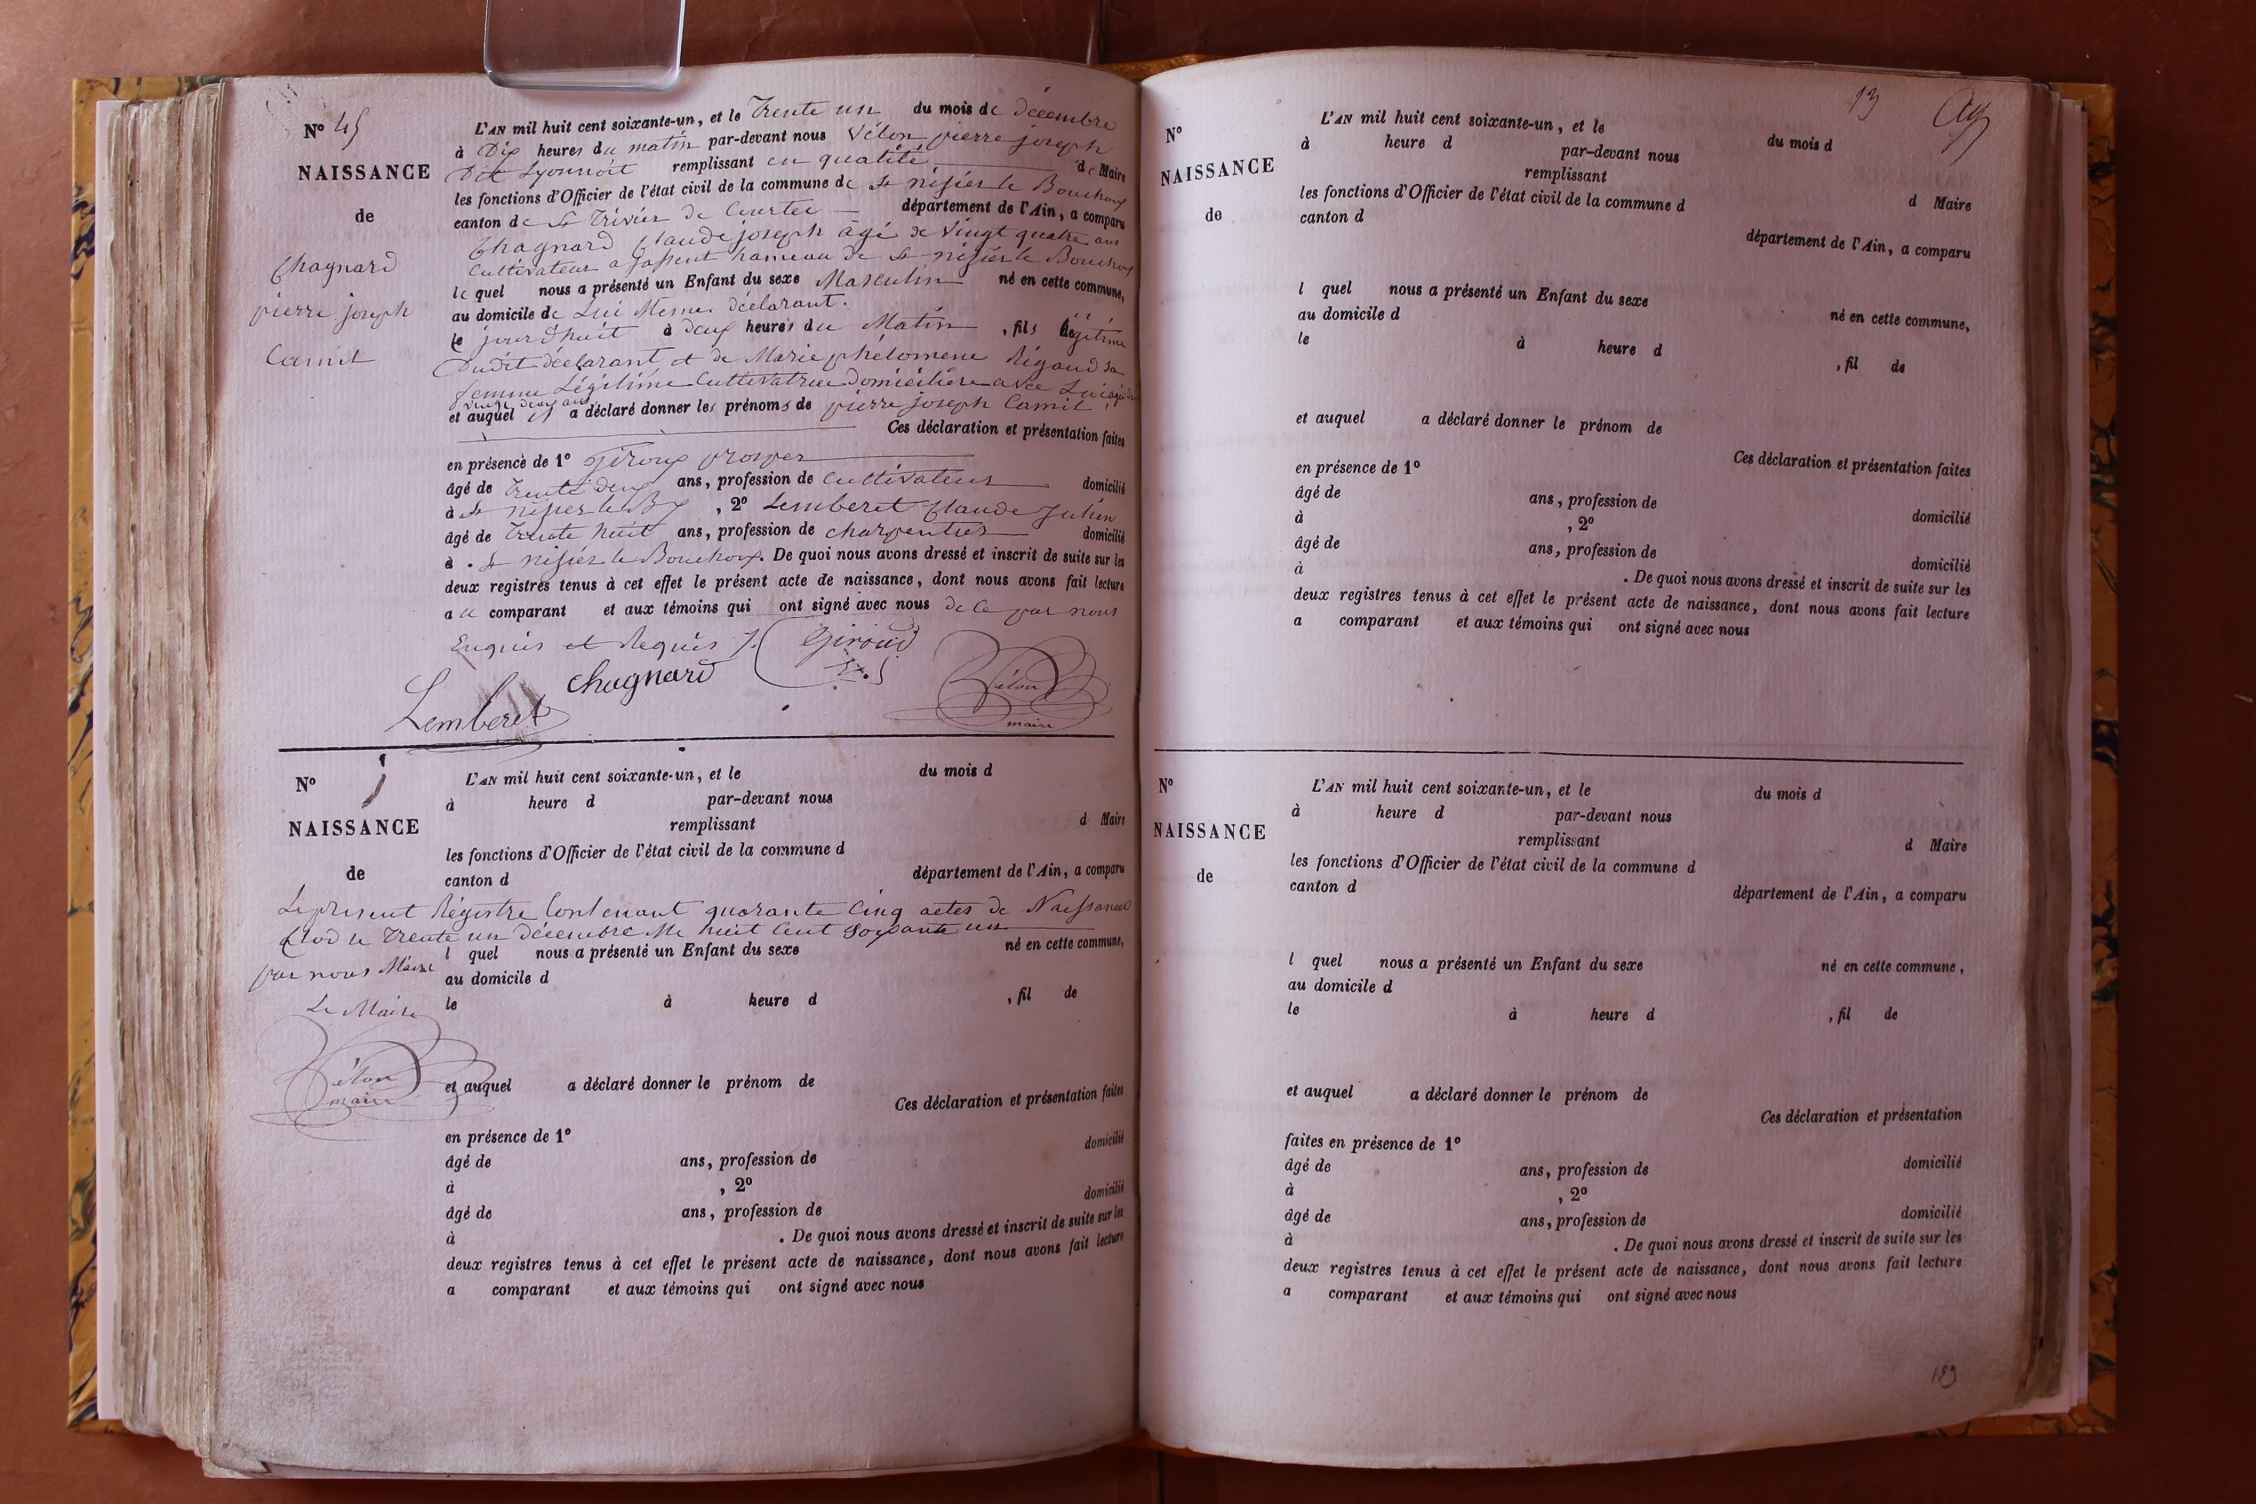 N° 45
NAISSANCE
de
Chagnard
pierre joseph
Camil
L'AN mil huit cent soixante-un, et le Trente un du mois de décembre
à Dix heures du matin par-devant nous Vélon pierre joseph
Dit Lyonnoit remplissant en qualité de Maire
les fonctions d'Officier de l'état civil de la commune de St nisier le Bouchoux
canton de St Trivier de Courtes département de l'Ain, a comparu
Chagnard Claude joseph âgé de vingt quatre ans
Cultivateur a hameau de St nisier le Bouchoux
lequel nous a présenté un Enfant du sexe Masculin né en cette commune,
au domicile de Lui Meme déclarant.
le jour d'huit à deux heures du Matin, fils légitime
Dudit déclarant et de Marie phélomene Rigaud sa
femme Légitime Cultivatrice domiciliere avec Lui agée de
vingt deux ans
et auquel il a déclaré donner les prénoms de pierre joseph Camil,
Ces déclaration et présentation faites
en présence de 1° Giroux prosper
âgé de Trente Deux ans, profession de Cultivateur domicilié
à St nisier le Bx, 2° Lemberet Claude Julien
âgé de Trente huit ans, profession de charpentier domicilié
à St nisier le Bouchoux. De quoi nous avons dressé et inscrit de suite sur les
deux registres tenus à cet effet le présent acte de naissance, dont nous avons fait lecture
au comparant et aux témoins qui ont signé avec nous de ce par nous
Enquis et Requis
Giroud
Chagnard
Lemberet
Vélon
maire
N°
NAISSANCE
de
L'AN mil huit cent soixante-un, et le du mois d
à heure d par-devant nous
remplissant d Maire
les fonctions d'Officier de l'état civil de la commune d
canton d département de l'Ain, a comparu
Le présent Régistre Contenant quarante Cinq actes de Naissance
Clod le Trente un décembre Mil huit Cent Soixante un
par nous Maire
Le Maire
Vélon
maire
l quel nous a présenté un Enfant du sexe né en cette commune,
au domicile d
le à heure d , fil de
et auquel a déclaré donner le prénom de
Ces déclaration et présentation faites
en présence de 1°
âgé de ans, profession de domicilié
à , 2°
âgé de ans, profession de domicilié
à . De quoi nous avons dressé et inscrit de suite sur les
deux registres tenus à cet effet le présent acte de naissance, dont nous avons fait lecture
a comparant et aux témoins qui ont signé avec nous
13
N°
NAISSANCE
de
L'AN mil huit cent soixante-un, et le du mois d
à heure d par-devant nous
remplissant d Maire
les fonctions d'Officier de l'état civil de la commune d
canton d département de l'Ain, a comparu
l quel nous a présenté un Enfant du sexe né en cette commune,
au domicile d
le à heure d , fil de
et auquel a déclaré donner le prénom de
Ces déclaration et présentation faites
en présence de 1°
âgé de ans, profession de domicilié
à , 2°
âgé de ans, profession de domicilié
à . De quoi nous avons dressé et inscrit de suite sur les
deux registres tenus à cet effet le présent acte de naissance, dont nous avons fait lecture
a comparant et aux témoins qui ont signé avec nous
N°
NAISSANCE
de
L'AN mil huit cent soixante-un, et le du mois d
à heure d par-devant nous
remplissant d Maire
les fonctions d'Officier de l'état civil de la commune d
canton d département de l'Ain, a comparu
l quel nous a présenté un Enfant du sexe né en cette commune,
au domicile d
le à heure d , fil de
et auquel a déclaré donner le prénom de
Ces déclaration et présentation
faites en présence de 1°
âgé de ans, profession de domicilié
à , 2°
âgé de ans, profession de domicilié
à . De quoi nous avons dressé et inscrit de suite sur les
deux registres tenus à cet effet le présent acte de naissance, dont nous avons fait lecture
a comparant et aux témoins qui ont signé avec nous
189